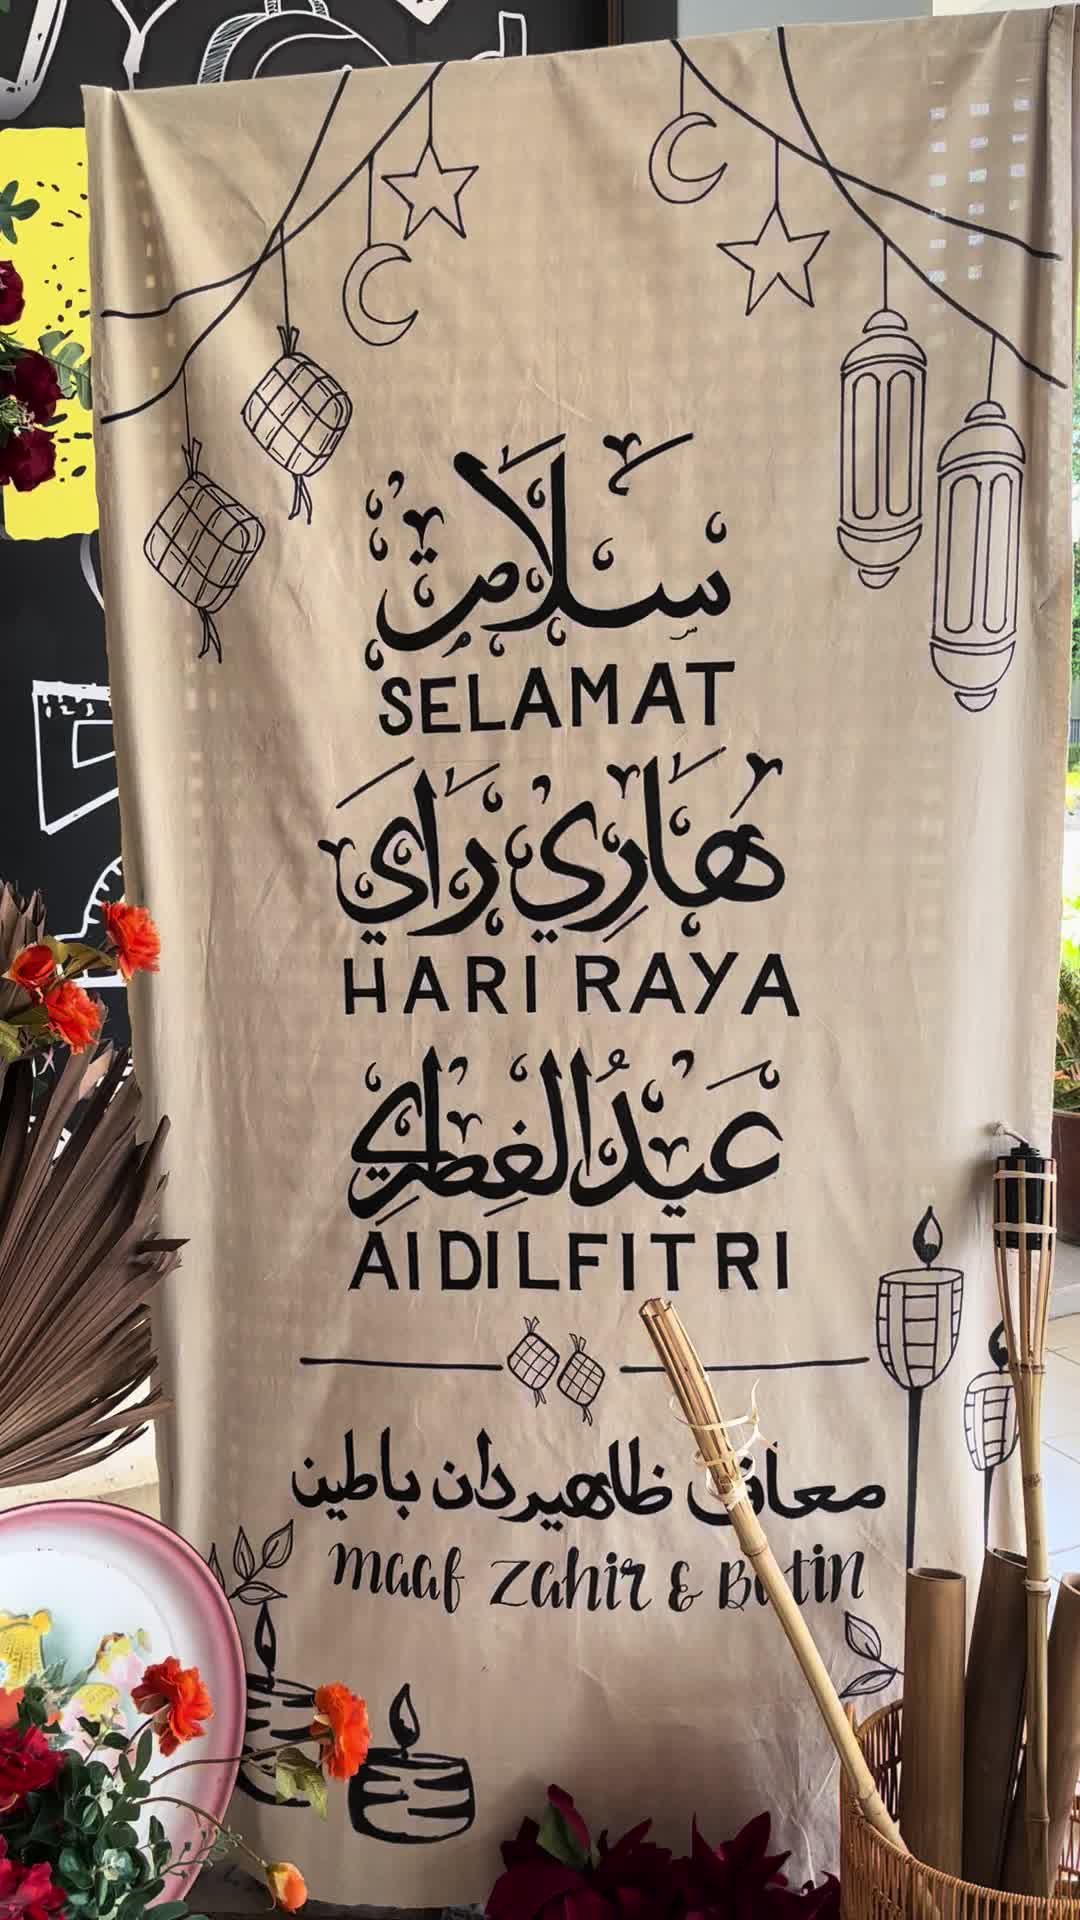 سلامت
SELAMAT
هاري راي
HARI RAYA
عيدالفطري
AIDILFITRI
معاف ظاهير دان باطين
Maaf Zahir & Batin